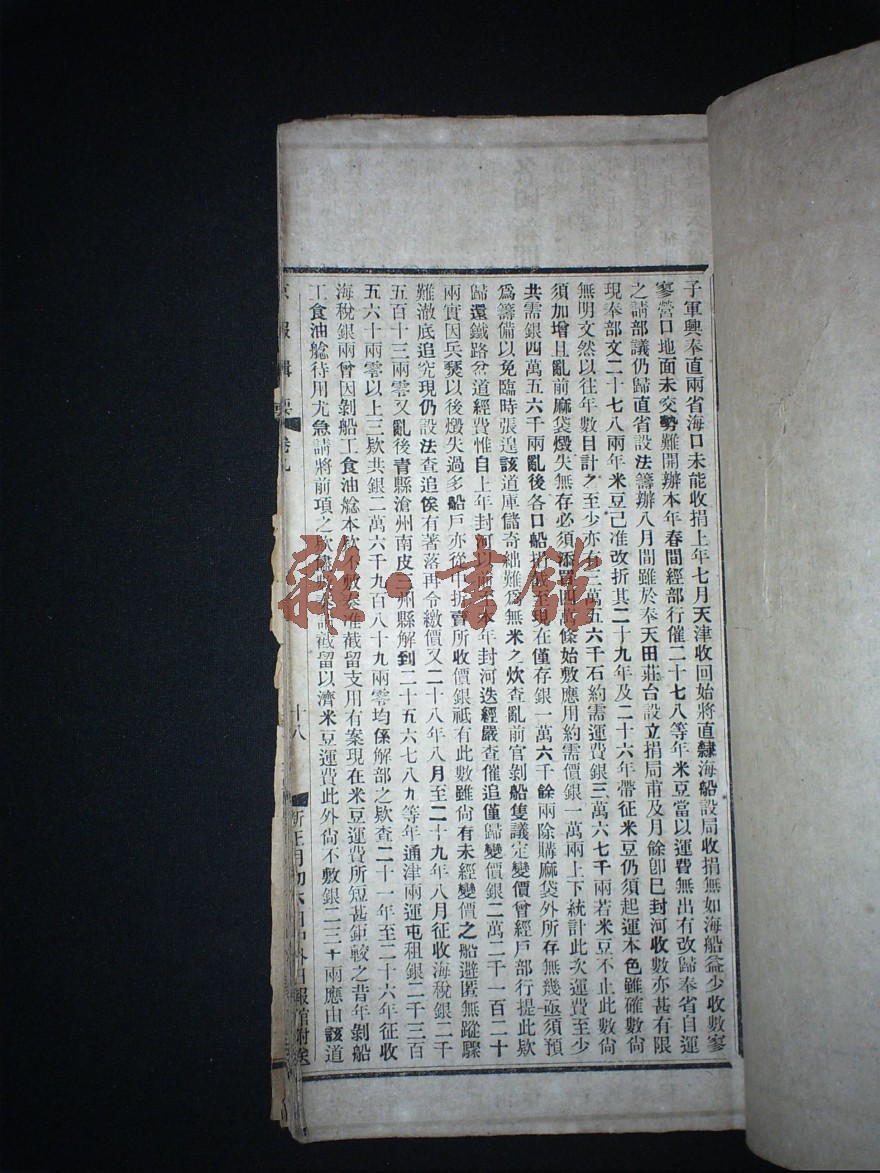 子軍興奉直兩省海口未能收捐上年七月天津收回始將直隸海船設局收捐無如海船益少收數寥
寥營口地面未交勢難開辦本年春間經部行催二十七八等年米豆當以運費無出有改歸奉省自運
之請部議仍歸直省設法籌辦八月間雖於奉天田莊台設立捐局甫及月餘卽巳封河收數亦甚有限
現奉部文二十七八兩年米豆己准改折其二十九年及二十六年帶征米豆仍須起運本色雖確數尙
無明文然以往年數目計之至少亦有二萬五六千石約需運費銀三萬六七千兩若米豆不止此數尙
須加增且亂前麻袋燬失無存必須添置四萬條始敷應用約需價銀一萬兩上下統計此次運費至少
共需銀四萬五六千兩亂後各口船捐截至現在僅存銀一萬六千餘兩除購麻袋外所存無幾亟須預
爲籌備以免臨時張遑該道庫儲奇絀難爲無米之炊查亂前官剝船隻議定變價曾經戶部行提此欵
歸還鐵路岔道經費惟自上年封河以前至本年封河迭經嚴查催追僅歸變價銀二萬二千一百二十
兩實因兵燹以後燬失過多船戶亦從中折賣所收價銀祗有此數雖尙有未經變價之船避匿無蹤驟
難澈底追究現仍設法查追俟有著落再令繳價又二十八年八月至二十九年八月征收海稅銀二千
五百十三兩零又亂後青縣滄州南皮三州縣解到二十五六七八九等年通津兩運屯租銀二千三百
五六十兩零以上三欵共銀二萬六千九百八十九兩零均係解部之欵查二十一年至二十六年征收
海稅銀兩曾因剝船工食油艌本欵不敷奏准截留支用有案現在米豆運費所短甚鉅較之昔年剝船
工食油艌待用尤急請將前項之欵儘數奏請截留以濟米豆運費此外尙不敷銀二三十兩應由該道
報輯要 卷九
十八
新正月初六日中外日報館附送
雜·書館